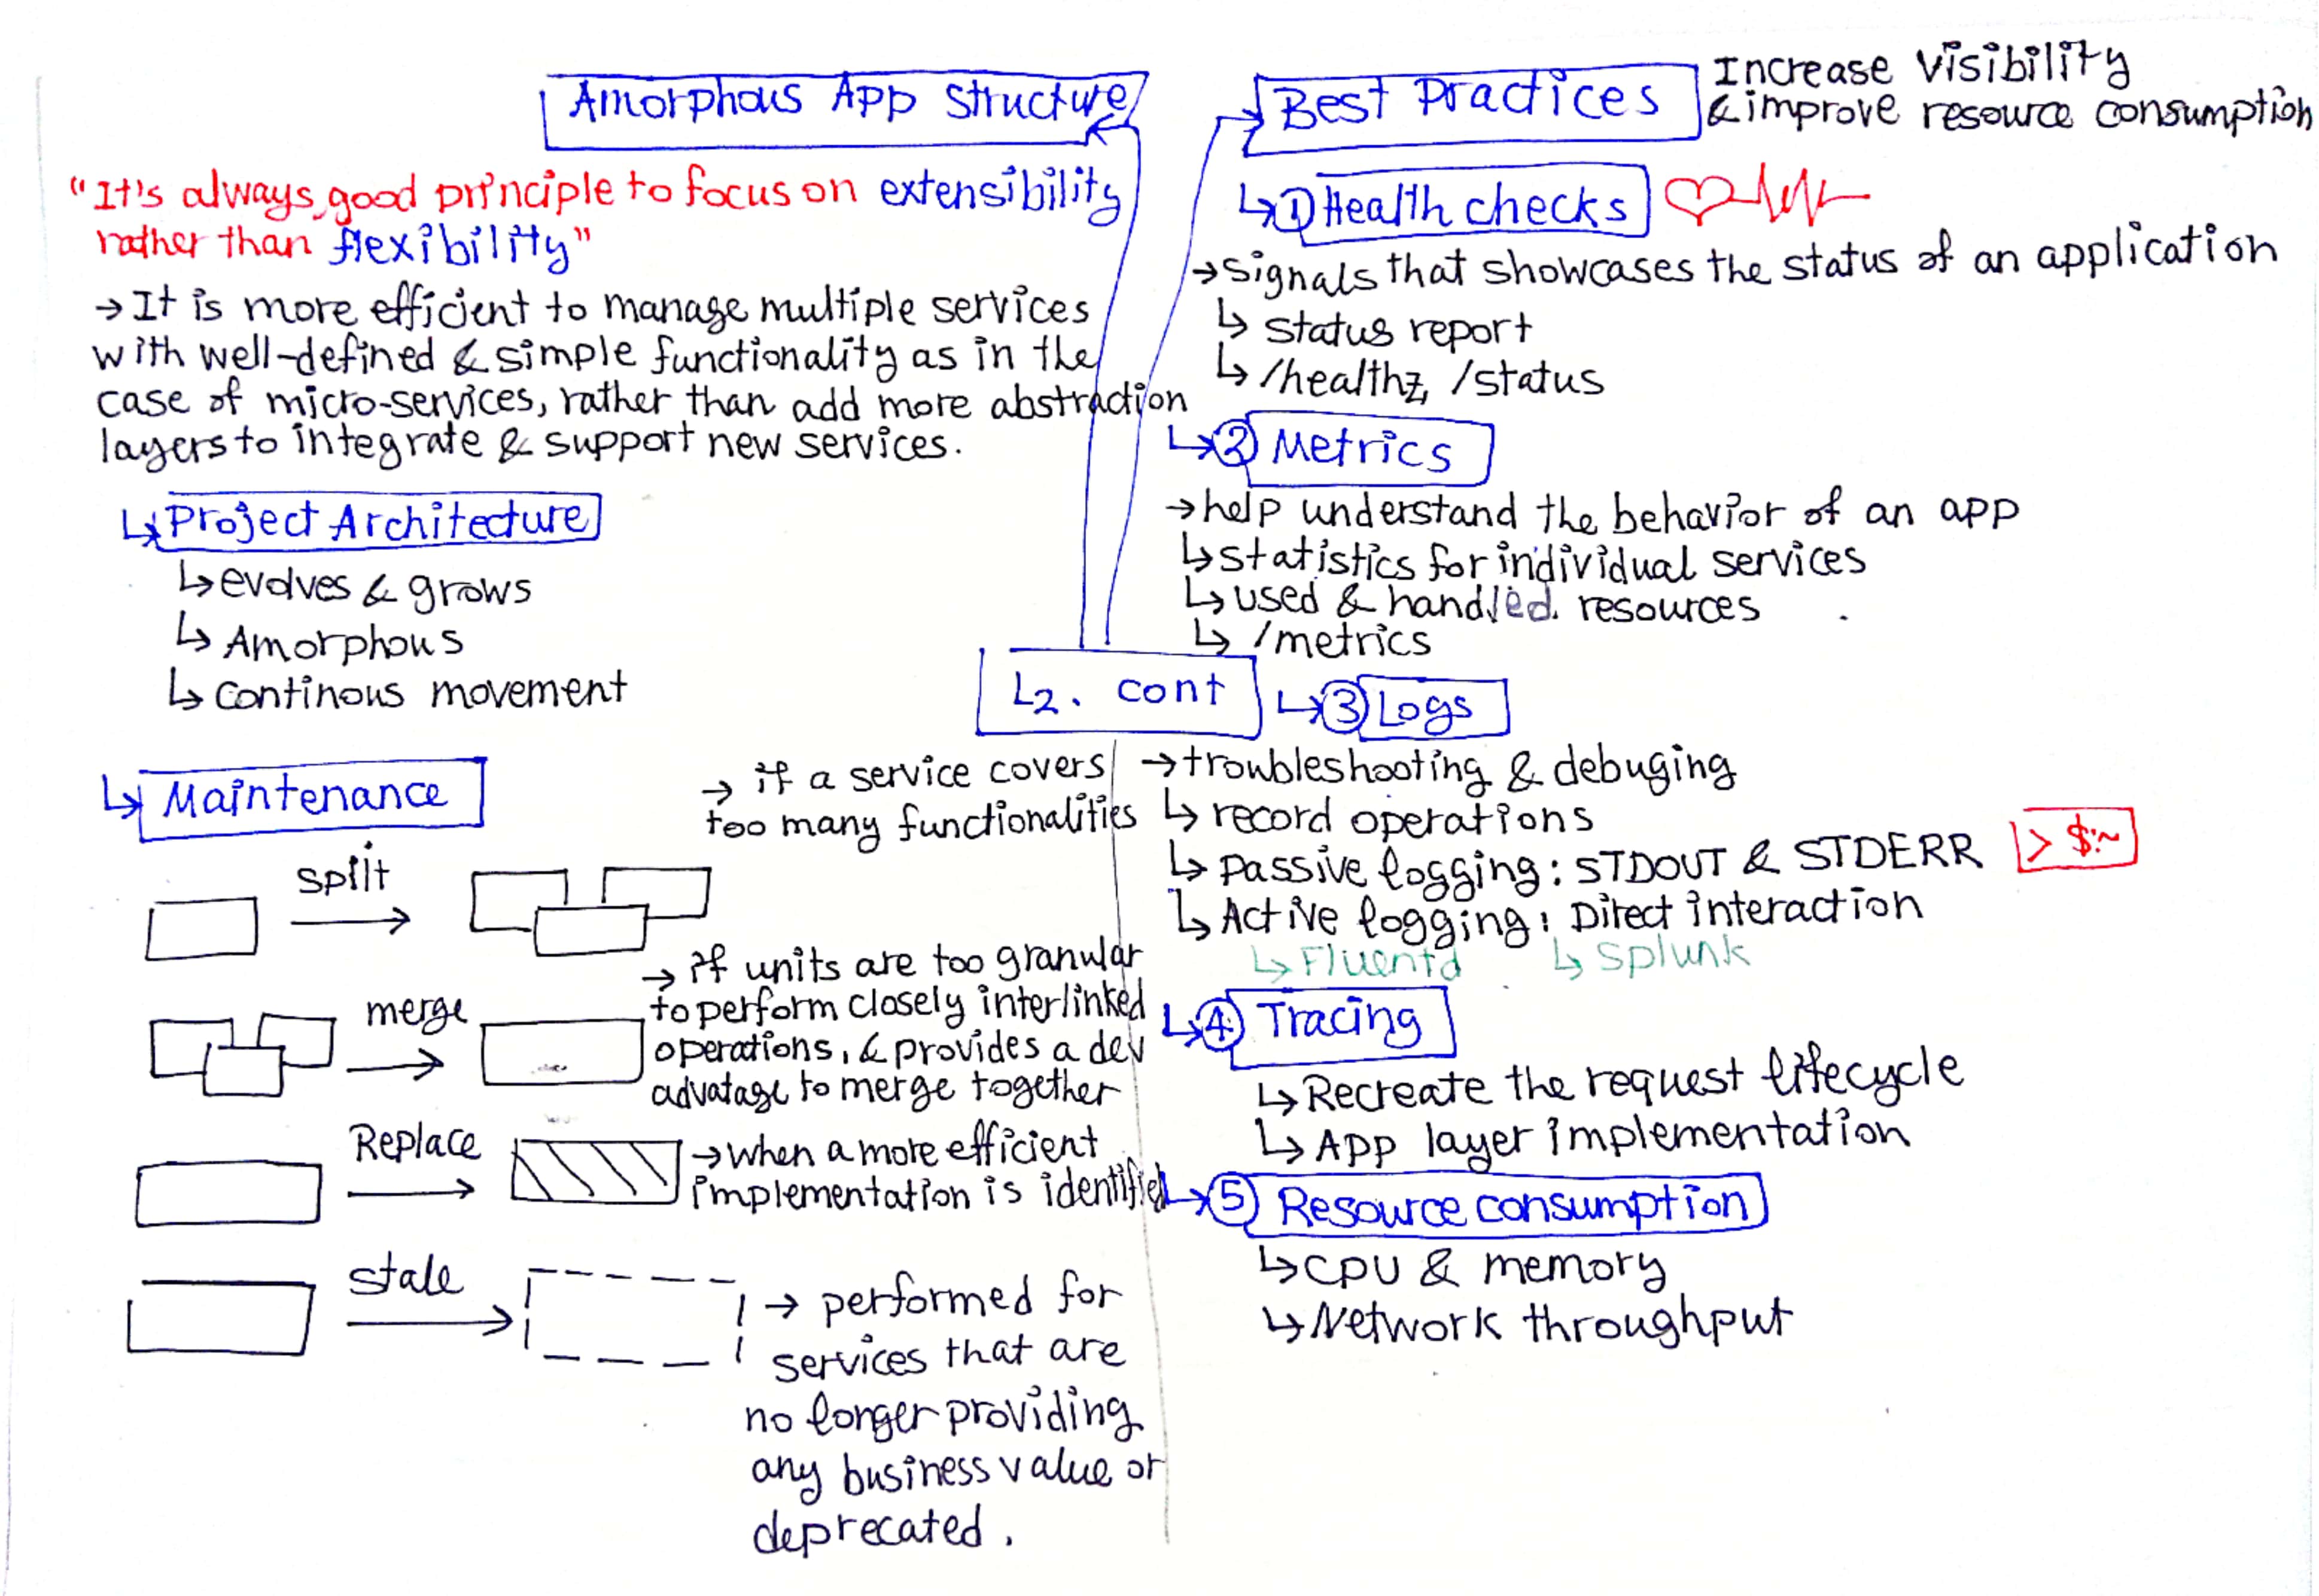 Amorphous App Structure
"It's always good principle to focus on extensibility
rather than flexibility"
→ It is more efficient to manage multiple services
with well-defined & simple functionality as in the
case of micro-services, rather than add more abstraction
layers to integrate & support new services.
↳ Project Architecture
↳ evolves & grows
↳ Amorphous
↳ continous movement
↳ Maintenance
split
→ if a service covers
too many functionalities
merge
→ if units are too granular
to perform closely interlinked
operations, & provides a dev
advatage to merge together
Replace
→ when a more efficient
implementation is identified
stale
→ performed for
services that are
no longer providing
any business value or
deprecated.
L2. cont
Best Practices
Increase visibility
& improve resource consumption
↳ ① Health checks
→ signals that showcases the status of an application
↳ status report
↳ /healthz, /status
↳ ② Metrics
→ help understand the behavior of an app
↳ statistics for individual services
↳ used & handled. resources
↳ /metrics
↳ ③ Logs
→ troubleshooting & debuging
↳ record operations
↳ passive logging: STDOUT & STDERR
> $:~
↳ Active logging: Direct interaction
↳ Fluentd ↳ Splunk
↳ ④ Tracing
↳ Recreate the request lifecycle
↳ App layer implementation
↳ ⑤ Resource consumption
↳ CPU & memory
↳ Network throughput